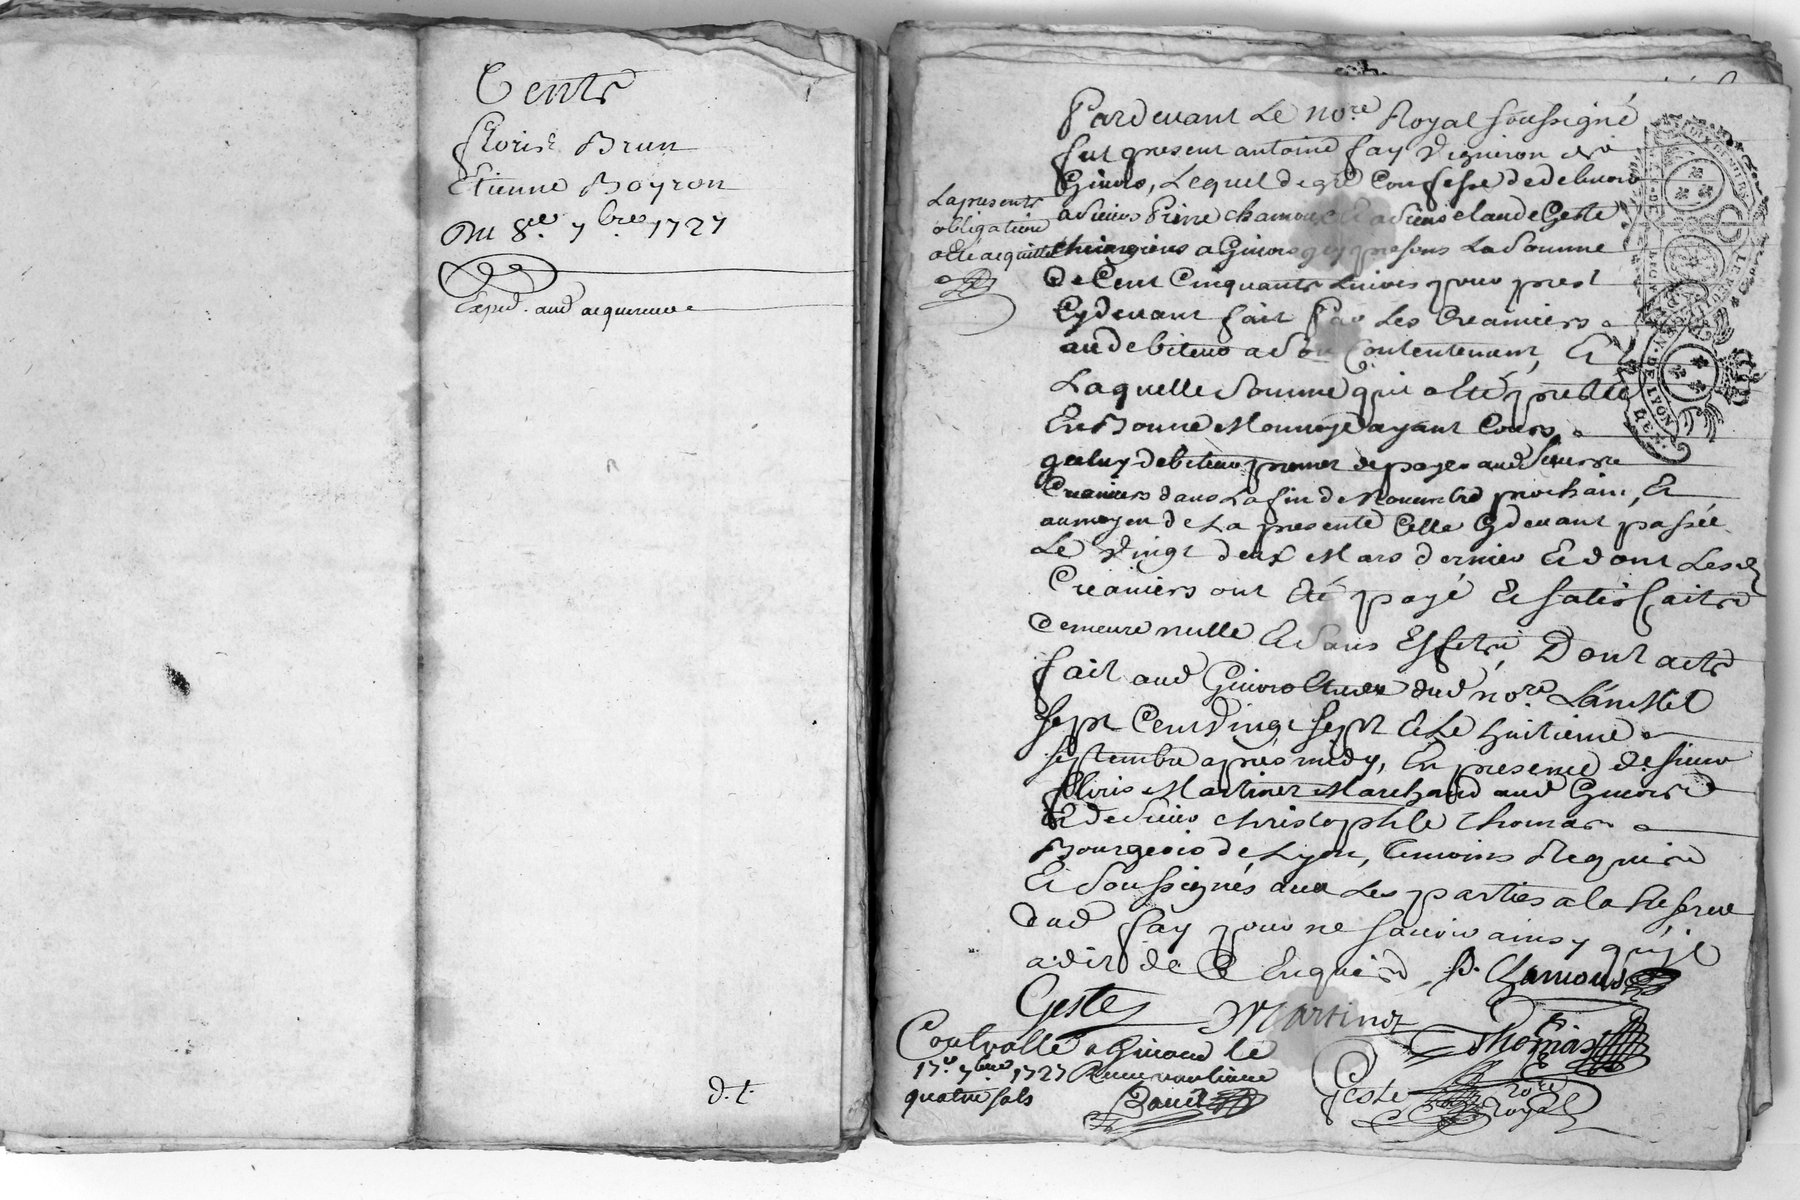 Vente
fleurie Brun
Etienne Boyron
Du 8e. 7bre 1727
Exped. aud acquereur
d. t.
Pardevant Le nore. Royal soussigné
fut present antoine fay Vigneron de
Givors, Lequel de gré Confesse de debvoir
a sieurs Pierre chamoux & a sieur claude Geste
chirurgiens a Givors icy presens La somme
de Cent Cinquante Livres pour prest
Cydevant fait Par Les Creanciers
au debiteur a son Contentement, Et
Laquelle somme qui a Eté prestée
En Bonne Monnoye ayant Cours
iceluy debiteur promet de payer aud sieurs
Creanciers dans La fin de Novembre prochain, Et
aumoyen de La presente Celle Cydevant passée
Le Vingt deux Mars dernier Et dont Lesd
Creanciers ont Eté payé Et satisfaits
demeure nulle Et sans Effet, Dont acte
fait aud Givors Etude dud nore. L'an Mil
sept Cent Vingt sept Et Le huitieme
septembre apres midy, En presence de sieur
fleuris Martinet Marchand aud Givors
Et de sieur christophle Thomas
Bourgeois de Lyon, temoins Requis
Et soussignés avec Les parties a la Reserve
dud fay pour ne savoir ainsy qu'il
a dit de Ce Enquis
La presente
obligation
a Eté acquittée
P. Chamoux
Geste
Martinet
Thomas
Controllé a Givors le
17e. 7bre 1727 Receu
quatre sols
Geste
nore
Royal
DE LYON